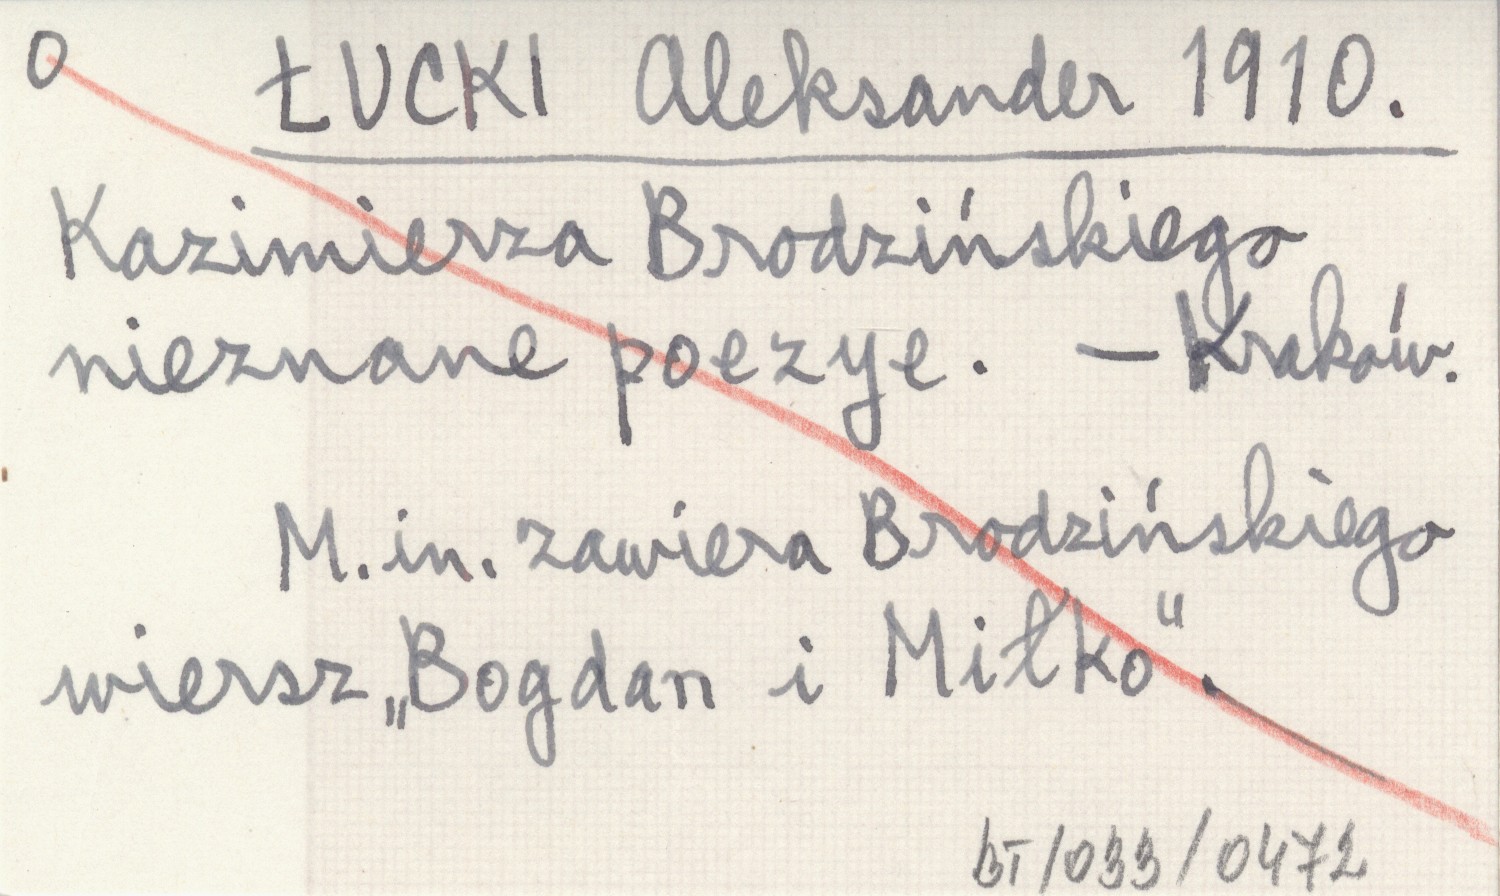 O ŁUCKI Aleksander 1910.
Kazimierza Brodzińskiego
nieznane poezye. – Kraków.
M. in. zawiera Brodzińskiego
wiersz „Bogdan i Miłko".
BT/033/0472